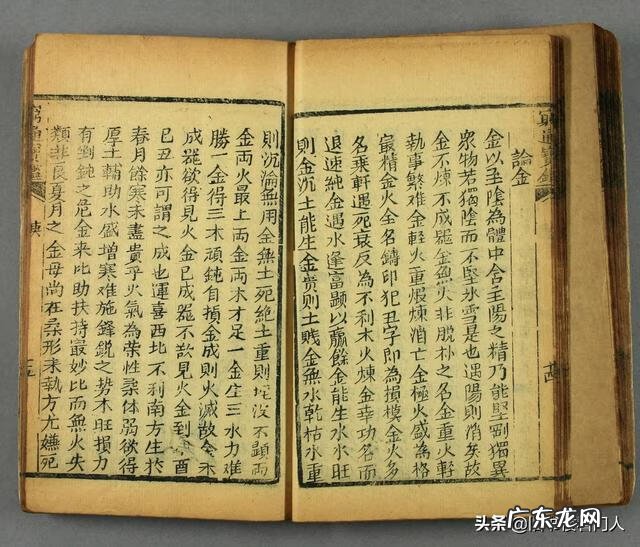 論金
金以至陰為體中含至陽之精乃能堅剛獨異
衆物若獨陰而不堅氷雪是也遇陽則消矣故
金不煉不成器金無火非脫朴之名金重火輕
執事繁难金輕火重煆煉消亡金極火盛為格
最精金火全名鑄印犯丑字即為損模金火多
名乗軒遇死衰反為不利木火煉金幸功名而
退速純金遇水逢富顯以贏餘金能生水水旺
則金沉土能生金金賁則土賎金無水乾枯水重
則沉淪無用金無土死絶土重則埋没不顕両
金両火最上両金両木才足一金生三水力难
勝一金得三木頑鈍自損金成則火滅故金未
成器欲得見火金已成器不欲見火金到申酉
巳丑亦可謂之成也運喜西北不利南方生於
春月餘寒未盡貴乎火氣為荣性柔体弱欲得
厚土輔助水盛增寒难施鋒鋭之势木旺損力
有剉鈍之危金來比助扶持最妙比而無火失
類非良夏月之金母尚在柔形未執方尤嫌死
窮通寶鑑
頭条@
广东龙网